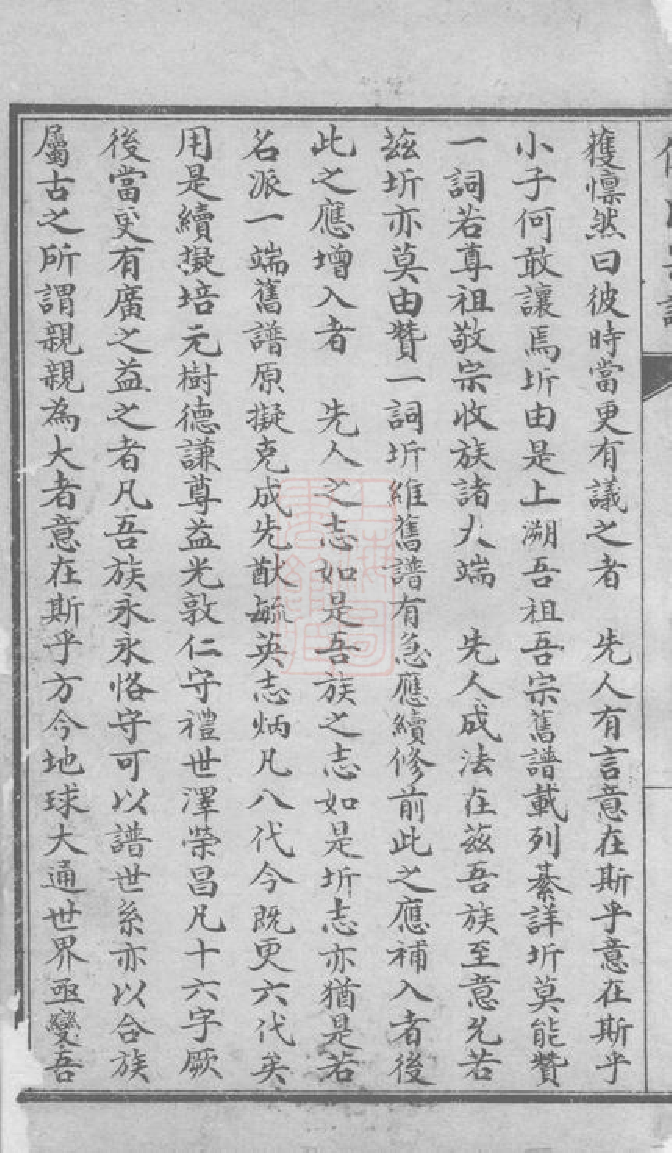 蒦懍然曰彼時當更有議之者　先人有言意在斯乎意在斯乎
小子何敢讓焉圻由是上溯吾祖吾宗舊譜載列綦詳圻莫能贊
一詞若尊祖敬宗收族諸大端　先人成法在茲吾族至意允若
茲圻亦莫由贊一詞圻維舊譜有急應續修前此之應補入者後
此之應增入者　先人之志如是吾族之志如是圻志亦猶是若
名派一端舊譜原擬克成先猷毓英志炳凡八代今既更六代矣
用是續擬培元樹德謙尊益光敦仁守禮世澤榮昌凡十六字厥
後當更有廣之益之者凡吾族永永恪守可以譜世系亦以合族
屬古之所謂親親為大者意在斯乎方今地球大通世界亟變吾